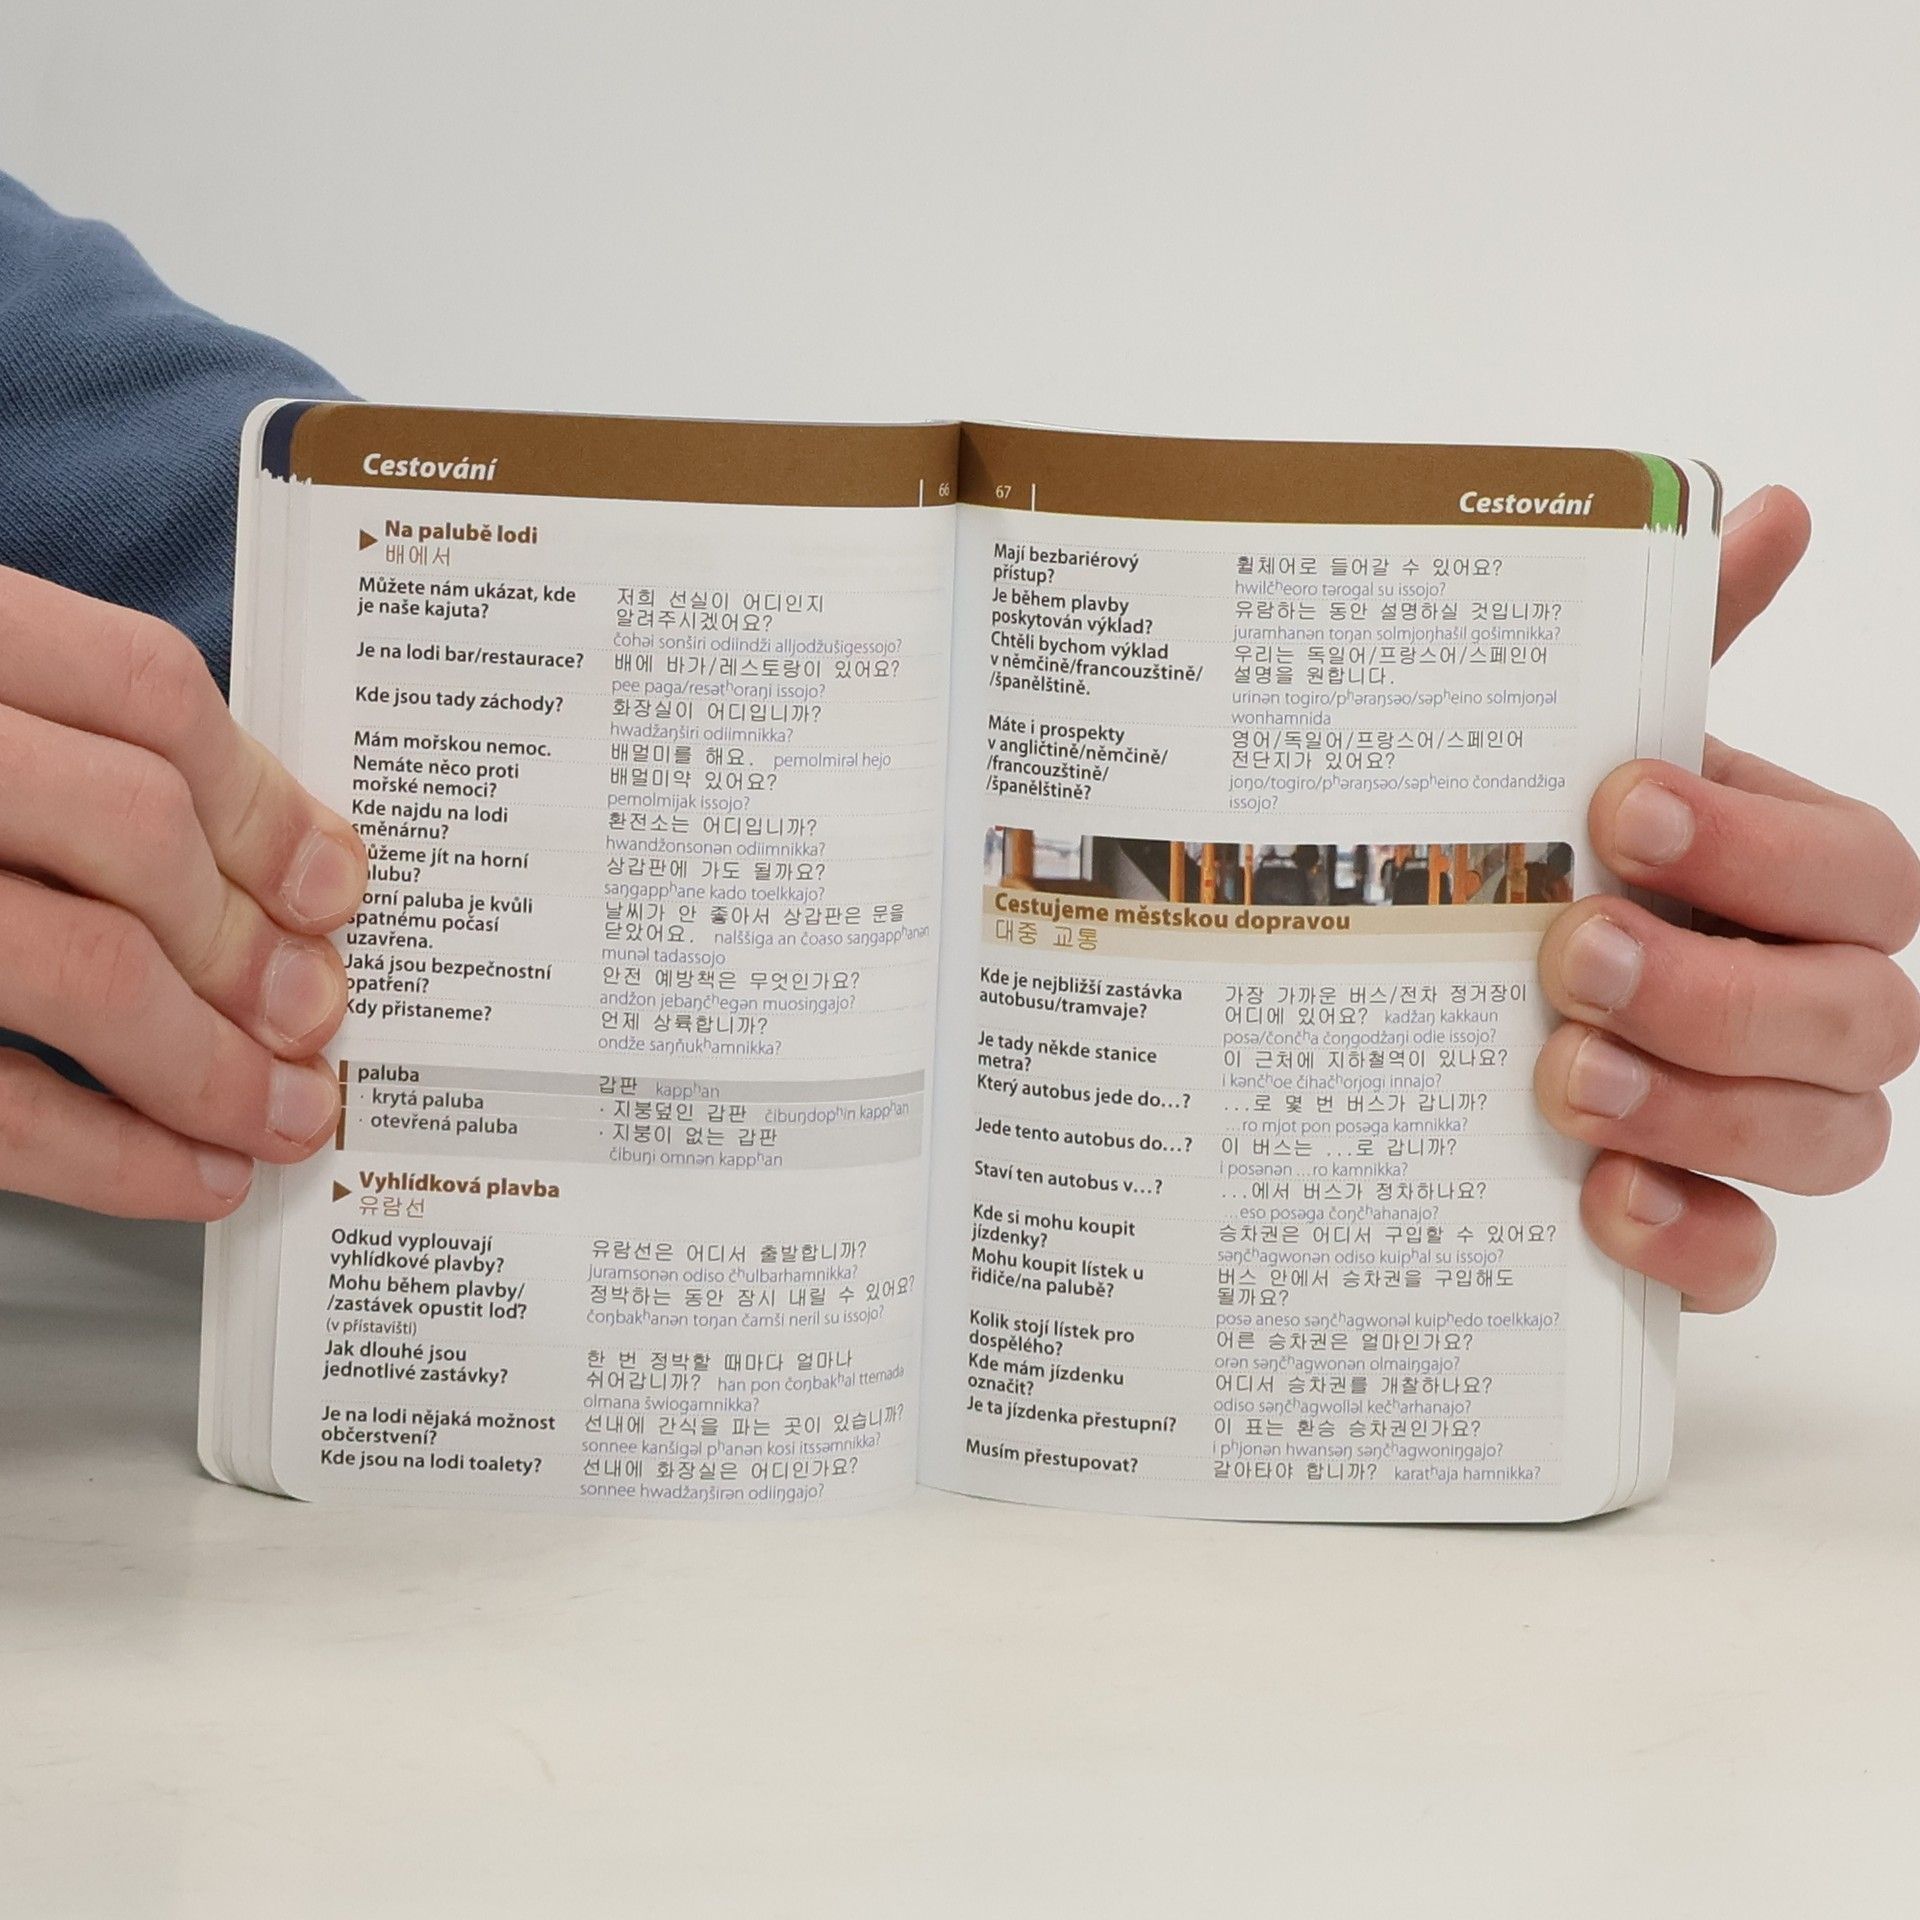 Cestování
66
Na palubě lodi
배에서
Můžete nám ukázat, kde
je naše kajuta?
저희 선실이 어디인지
알려주시겠어요?
čohəi sonširi odiindži alljodžušigessojo?
Je na lodi bar/restaurace?
배에 바가/레스토랑이 있어요?
pee paga/resətʰoraŋi issojo?
Kde jsou tady záchody?
화장실이 어디입니까?
hwadžaŋširi odiimnikka?
Mám mořskou nemoc.
배멀미를 해요. pemolmirəl hejo
Nemáte něco proti
mořské nemoci?
배멀미약 있어요?
pemolmijak issojo?
Kde najdu na lodi
směnárnu?
환전소는 어디입니까?
hwandžonsonən odiimnikka?
ůžeme jít na horní
alubu?
상갑판에 가도 될까요?
saŋgappʰane kado toelkkajo?
orní paluba je kvůli
špatnému počasí
uzavřena.
날씨가 안 좋아서 상갑판은 문을
닫았어요. nalššiga an čoaso saŋgappʰanən
munəl tadassojo
Jaká jsou bezpečnostní
opatření?
안전 예방책은 무엇인가요?
andžon jebaŋčʰegən muosiŋgajo?
Kdy přistaneme?
언제 상륙합니까?
ondže saŋňukʰamnikka?
paluba
갑판 kappʰan
· krytá paluba
· 지붕덮인 갑판 čibuŋdopʰin kappʰan
· otevřená paluba
· 지붕이 없는 갑판
čibuŋi omnən kappʰan
Vyhlídková plavba
유람선
Odkud vyplouvají
vyhlídkové plavby?
유람선은 어디서 출발합니까?
juramsonən odiso čʰulbarhamnikka?
Mohu během plavby/
/zastávek opustit loď?
(v přístavišti)
정박하는 동안 잠시 내릴 수 있어요?
čoŋbakʰanən toŋan čamši neril su issojo?
Jak dlouhé jsou
jednotlivé zastávky?
한 번 정박할 때마다 얼마나
쉬어갑니까? han pon čoŋbakʰal ttemada
olmana šwiogamnikka?
Je na lodi nějaká možnost
občerstvení?
선내에 간식을 파는 곳이 있습니까?
sonnee kanšigəl pʰanən kosi itssəmnikka?
Kde jsou na lodi toalety?
선내에 화장실은 어디인가요?
sonnee hwadžaŋširən odiiŋgajo?
67
Cestování
Mají bezbariérový
přístup?
휠체어로 들어갈 수 있어요?
hwilčʰeoro tərogal su issojo?
Je během plavby
poskytován výklad?
유람하는 동안 설명하실 것입니까?
juramhanən toŋan solmjoŋhašil gošimnikka?
Chtěli bychom výklad
v němčině/francouzštině/
/španělštině.
우리는 독일어/프랑스어/스페인어
설명을 원합니다.
urinən togiro/pʰəraŋsəo/səpʰeino solmjoŋəl
wonhamnida
Máte i prospekty
v angličtině/němčině/
/francouzštině/
/španělštině?
영어/독일어/프랑스어/스페인어
전단지가 있어요?
joŋo/togiro/pʰəraŋsəo/səpʰeino čondandžiga
issojo?
Cestujeme městskou dopravou
대중 교통
Kde je nejbližší zastávka
autobusu/tramvaje?
가장 가까운 버스/전차 정거장이
어디에 있어요? kadžaŋ kakkaun
posə/čončʰa čoŋgodžaŋi odie issojo?
Je tady někde stanice
metra?
이 근처에 지하철역이 있나요?
i kənčʰoe čihačʰorjogi innajo?
Který autobus jede do…?
...로 몇 번 버스가 갑니까?
...ro mjot pon posəga kamnikka?
Jede tento autobus do…?
이 버스는 ...로 갑니까?
i posənən ...ro kamnikka?
Staví ten autobus v…?
...에서 버스가 정차하나요?
...eso posəga čoŋčʰahanajo?
Kde si mohu koupit
jízdenky?
승차권은 어디서 구입할 수 있어요?
səŋčʰagwonən odiso kuipʰal su issojo?
Mohu koupit lístek u
řidiče/na palubě?
버스 안에서 승차권을 구입해도
될까요?
posə aneso səŋčʰagwonəl kuipʰedo toelkkajo?
Kolik stojí lístek pro
dospělého?
어른 승차권은 얼마인가요?
orən səŋčʰagwonən olmaiŋgajo?
Kde mám jízdenku
označit?
어디서 승차권를 개찰하나요?
odiso səŋčʰagwolləl kečʰarhanajo?
Je ta jízdenka přestupní?
이 표는 환승 승차권인가요?
i pʰjonən hwansəŋ səŋčʰagwoniŋgajo?
Musím přestupovat?
갈아타야 합니까? karatʰaja hamnikka?